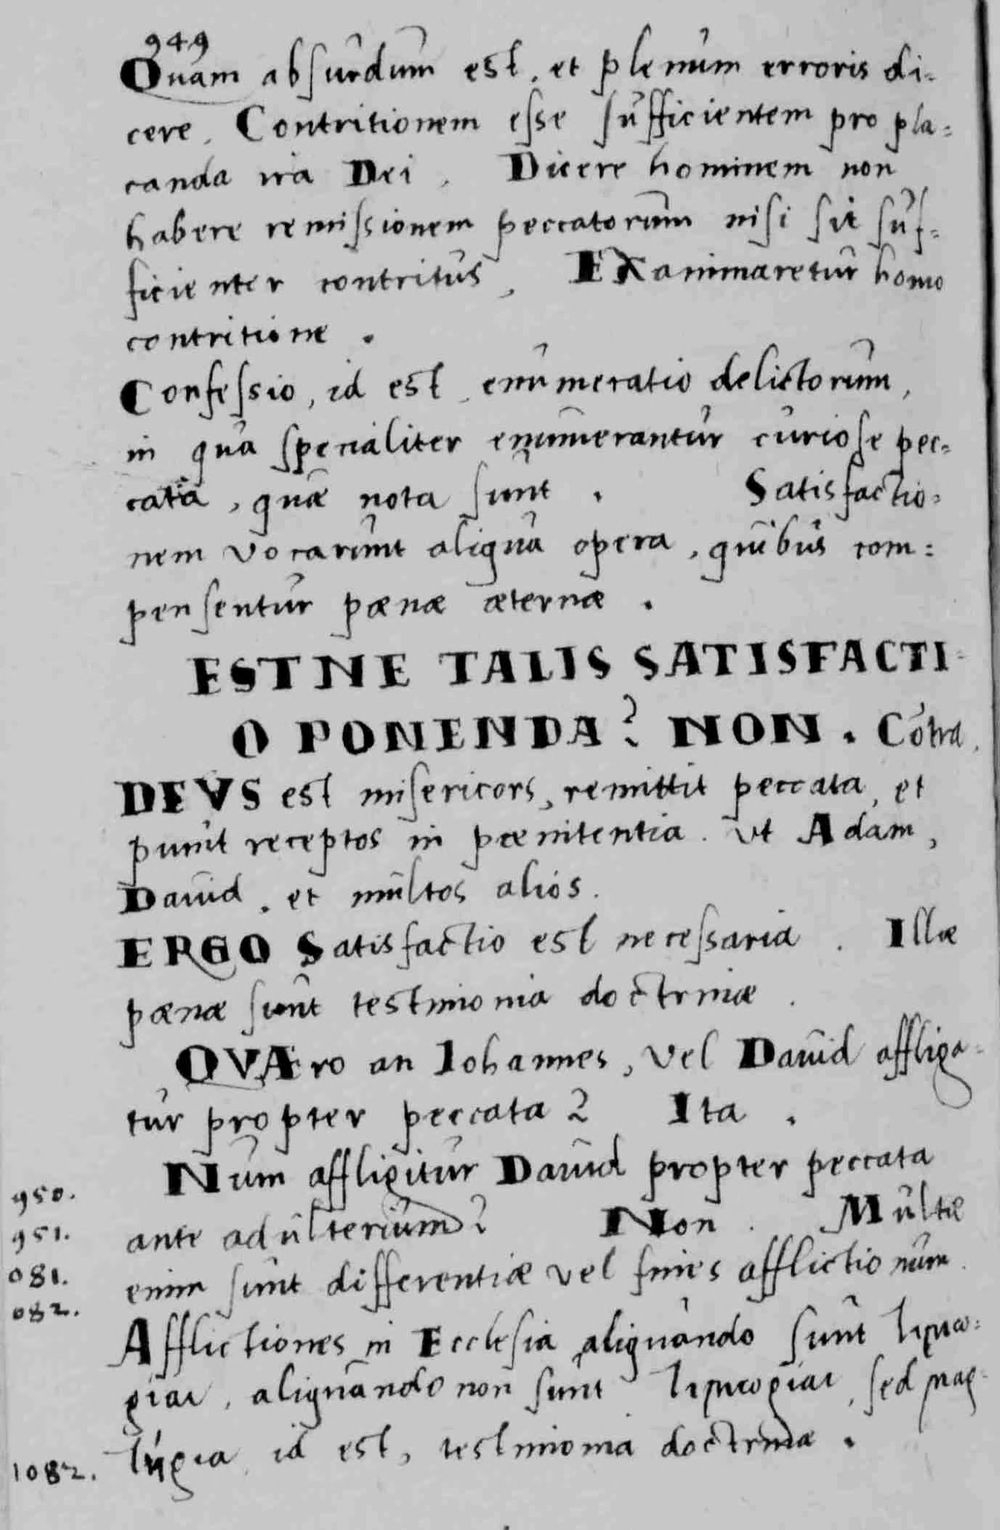 949
Quam absurdum est, et plenum erroris di-
cere, Contritionem esse sufficientem pro pla=
canda ira Dei. Dicere hominem non
habere remissionem peccatorum nisi sit suf=
ficienter contritus, EXanimaretur homo
contritione.
Confessio, id est, enumeratio delictorum,
in qua specialiter enumerantur curiose pec=
cata, quæ nota sunt. Satisfactio=
nem vocarunt aliqua opera, quibus com=
pensentur pænæ æternæ.
ESTNE TALIS SATISFACTI-
O PONENDA? NON. Cōtra,
DEVS est misericors, remittit peccata, et
punit receptos in pœnitentia. Ut Adam,
Dauid, et multos alios.
ERGO Satisfactio est necessaria. Illæ
pænæ sunt testimonia doctrinæ.
QVÆro an Iohannes, vel Dauid affliga=
tur propter peccata? Ita.
Num affligitur Dauid propter peccata
950.
ante adulterium? Non. Multæ
951.
enim sunt differentiæ vel fines afflictionum.
081.
082.
Afflictiones in Ecclesia aliquando sunt τιμω=
ρίαι, aliquando non sunt τιμωρίαι, sed μαρ=
τύρια id est, testimonia doctrinæ.
1082.